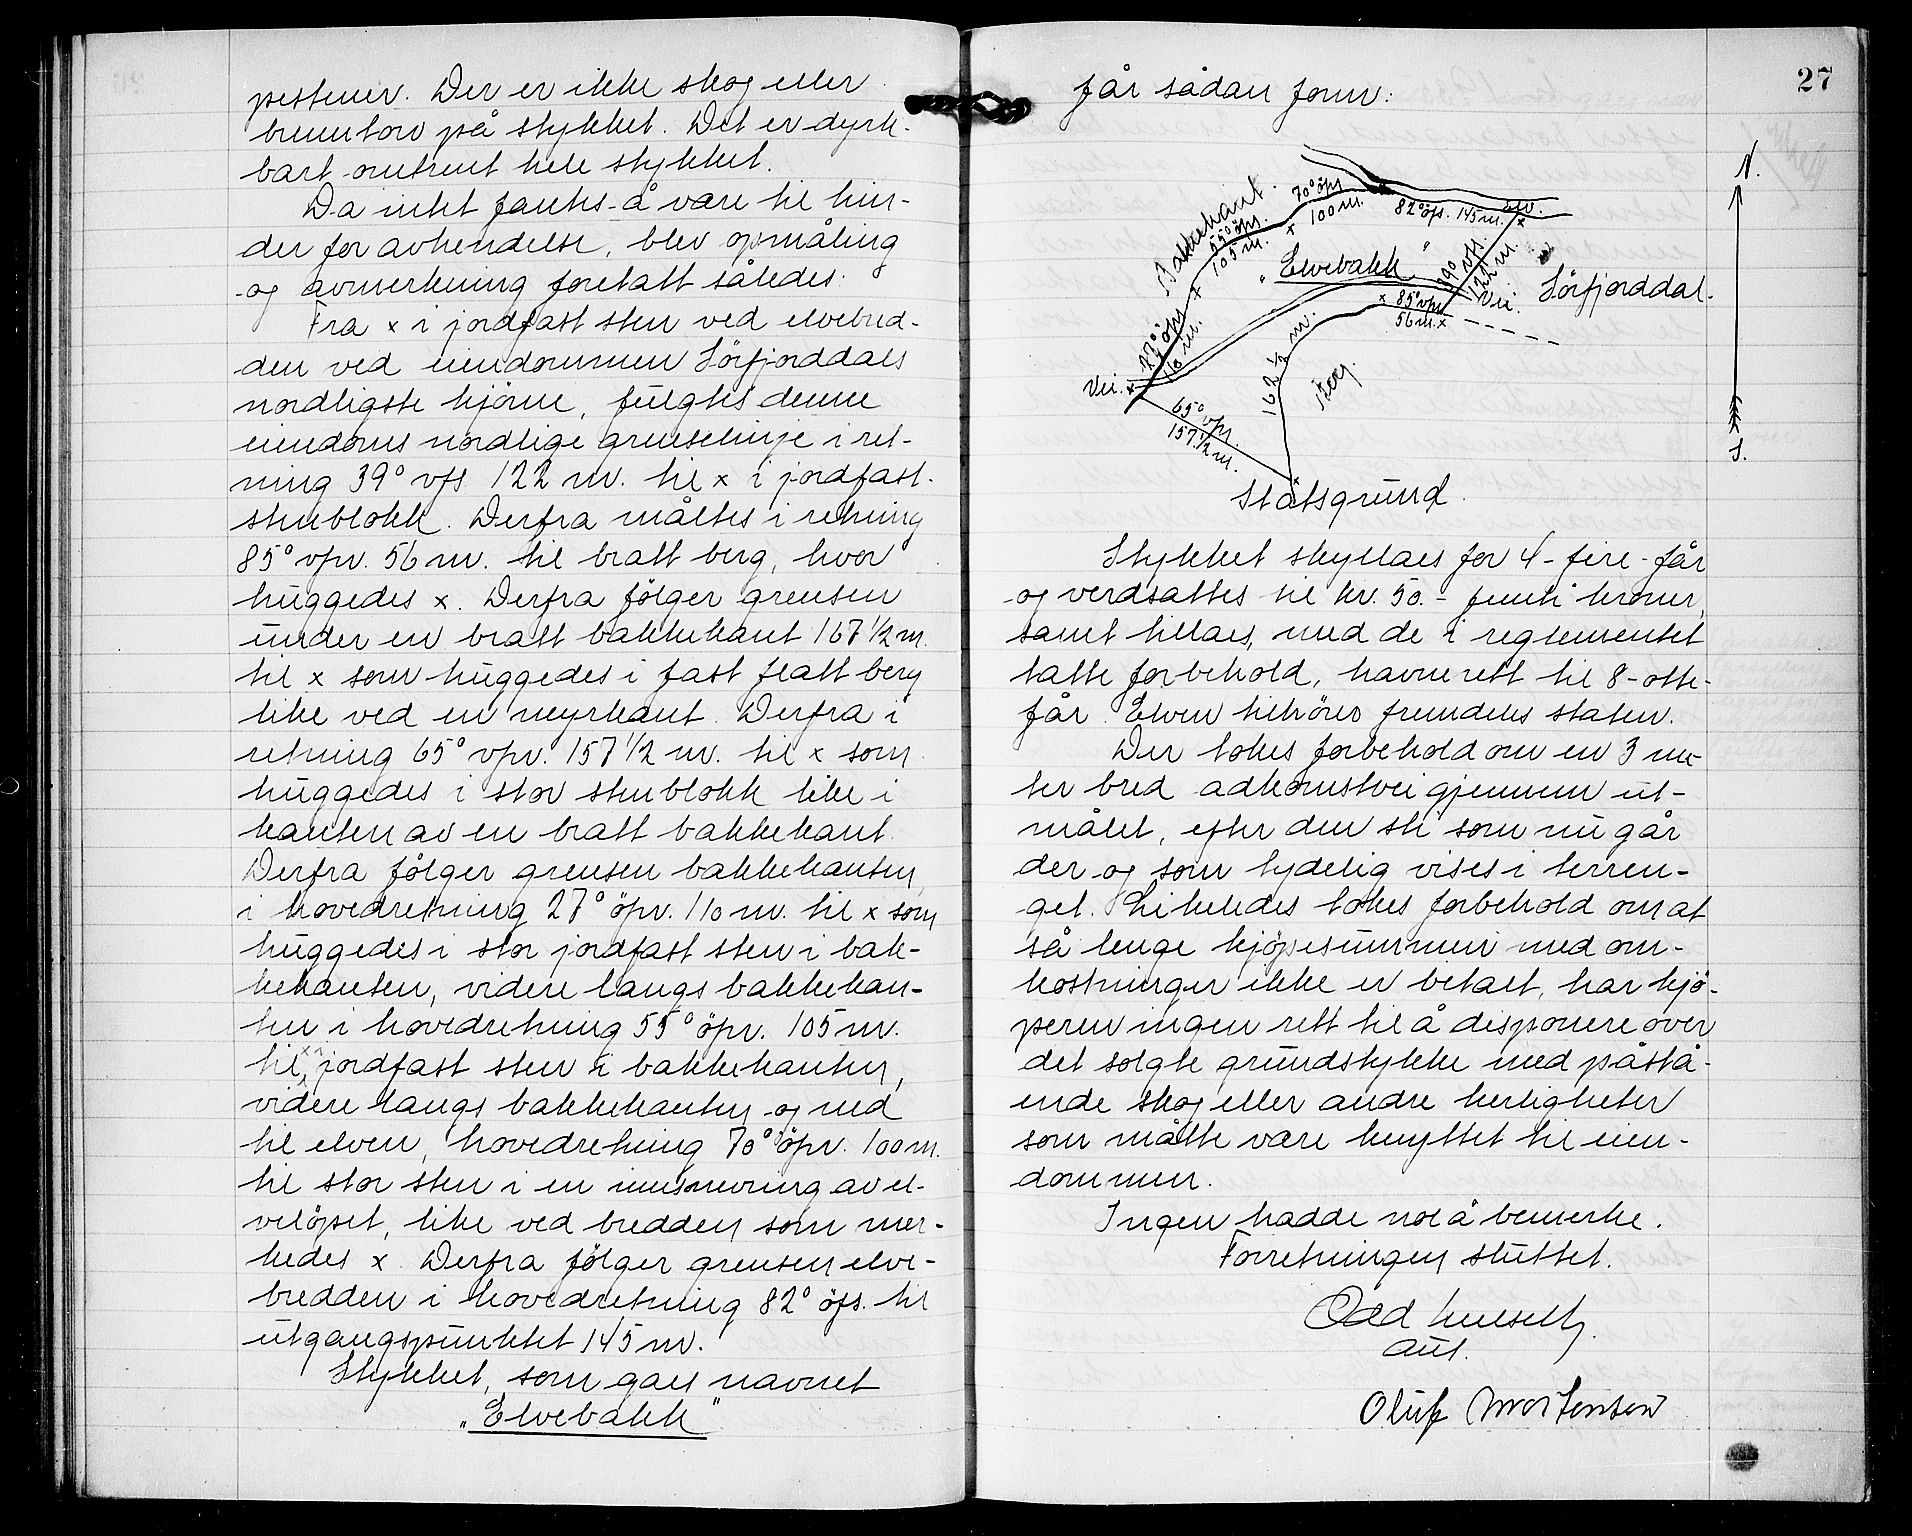 pestener. Der er ikke skog eller
brenntorv på stykket. Det er dyrk-
bart omtrent hele stykket.
Da intet fantes å være til hin-
der for avhendelse, blev opmåling
og avmerkning foretatt således:
Fra x i jordfast sten ved elvebred-
den ved eiendommen Sörfjorddals
nordligste hjörne, fulgtes denne
eiendoms nordlige grenselinje i ret-
ning 39° vfs 122 m. til x i jordfast
stenblokk. Derfra måltes i retning
85° vpv. 56 m. til bratt berg, hvor
huggedes x. Derfra fölger grensen
under en bratt bakkekant 167 1/2 m.
til x som huggedes i fast flatt berg
like ved en myrkant. Derfra i
retning 65° vpv. 157 1/2 m. til x som
huggedes i stor stenblokk like i
kanten av en bratt bakkekant.
Derfra fölger grensen bakkekanten,
i hovedretning 27° öpv. 110 m. til x som
huggedes i stor jordfast sten i bak-
kekanten, videre langs bakkekan-
ten i hovedretning 55° öpv. 105 m.
til x i jordfast sten i bakkekanten,
videre langs bakkekanten og ned
til elven, hovedretning 70° öpv. 100 m.
til stor sten i en innsnevring av el-
velöpet, like ved bredden som mer-
kedes x. Derfra fölger grensen elve-
bredden i hovedretning 82° öfs. til
utgangspunktet 145 m.
Stykket, som gaes navnet
"Elvebakk"
27
får sådan form:
N.
Bakkekant.
70° öpv
100 m.
82° öfs. 145 m.
elv.
55° öpv.
105 m.
"Elvebakk"
39° vfs.
122 m.
Vei.
Sörfjorddal.
85° vpv
56 m.
27° öpv
110 m.
Vei.
162 1/2 m.
Berg.
65° vpv.
157 1/2 m.
S.
Statsgrund.
Stykket skyllaes for 4 - fire - får
og verdsattes til kr. 50.- femti kroner,
samt tillaes, med de i reglementet
tatte forbehold, havnerett til 8 - otte -
får. Elven tilhörer fremdeles staten.
Der tokes forbehold om en 3 me-
ter bred adkomstvei gjennem ut-
målet, efter den sti som nu går
der og som tydelig vises i terren-
get. Likeledes tokes forbehold om at
så lenge kjöpesummen med om-
kostninger ikke er betalt, har kjö-
peren ingen rett til å disponere over
det solgte grundstykke med påstå-
ende skog eller andre herligheter
som måtte være knyttet til eien-
dommen.
Ingen hadde noe å bemerke.
Forretningen sluttet.
Odd
aut.
Oluf Mortensen